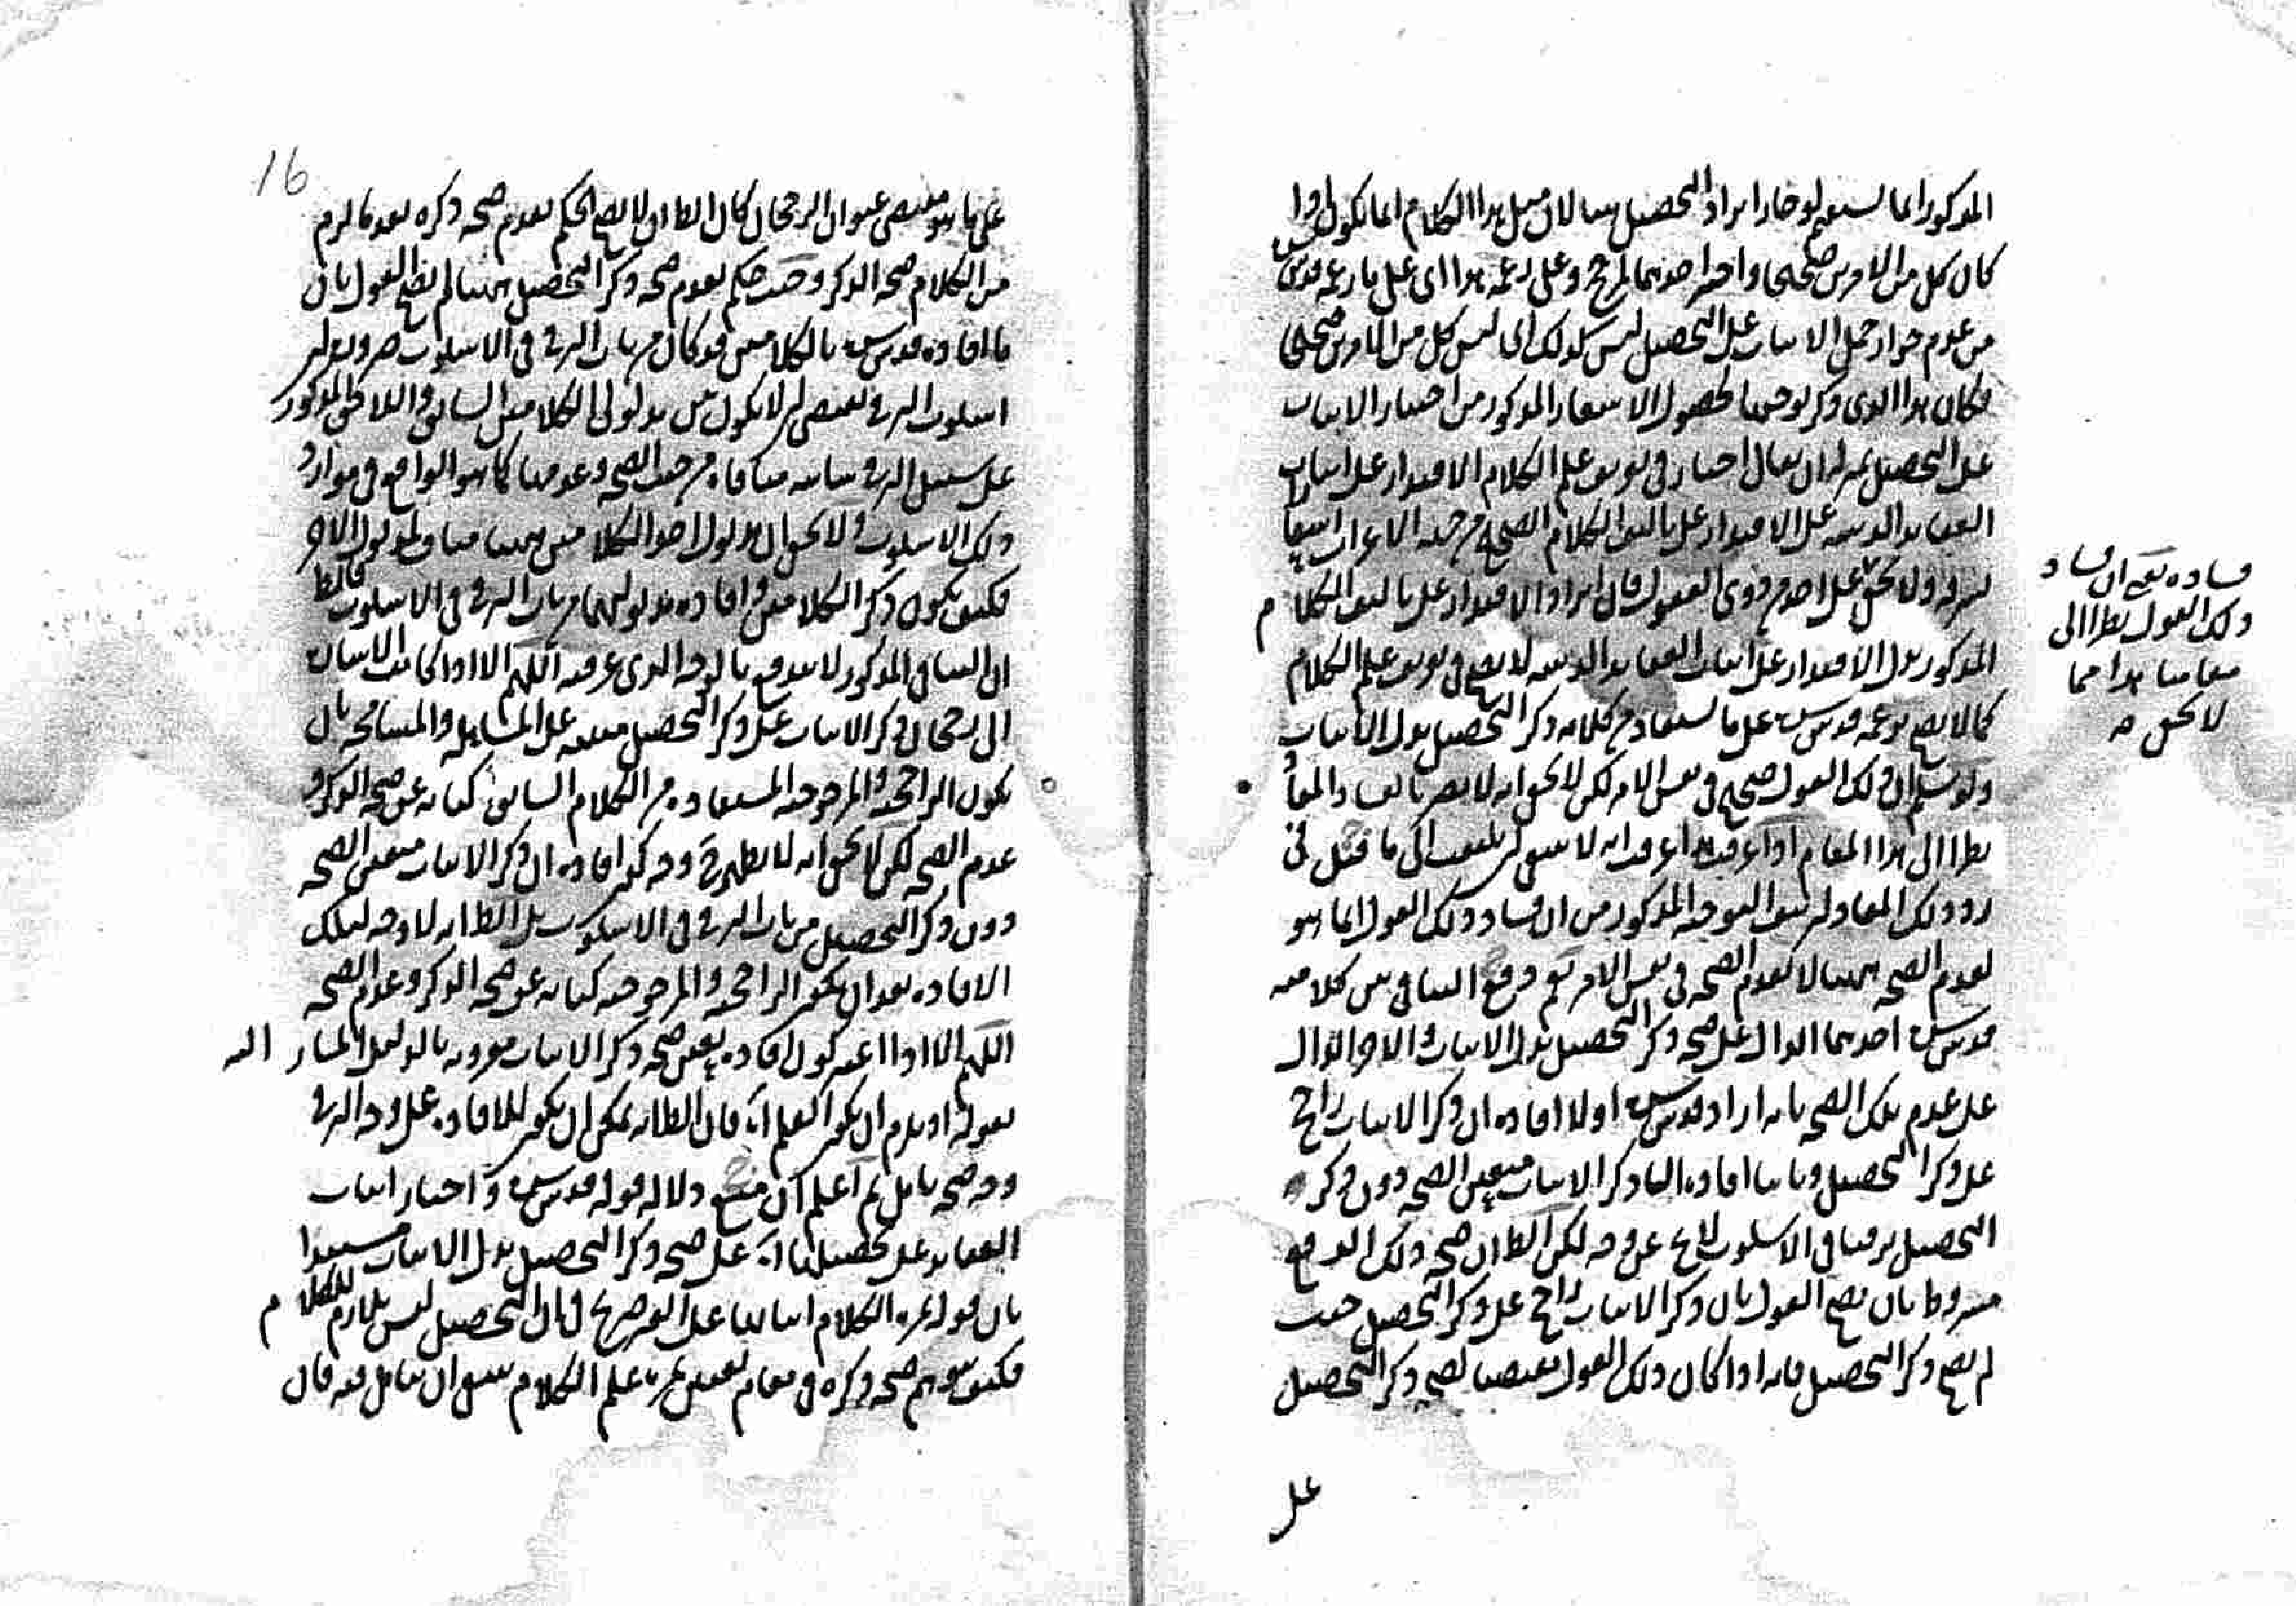 المذكور انما يستقيم لو جاز ايراد التحصيل ههنا لان مثل هذا الكلام انما يكون اذا
كان كل من الامرين صحيحا واحدا احدهما ارجح وعلى زعمه هذا اى على ما زعمه قدس سره
من عدم جواز حمل الاثبات على التحصيل ليس كذلك اى ليس كل من الامرين صحيحا
فكان هذا الذى ذكر توجيها لحصول الاشعار المذكور من اختيار الاثبات
على التحصيل بمنزلة ان يقال اختيار فى تعريف علم الكلام الاقتدار على اثبات
العقايد الدينية على الاقتدار على تاليف الكلام الصحيح من جهة الاعراب اشعارا
ولا يخفى على احد من ذوى العقول فان ايراد الاقتدار على تاليف الكلام
المذكور بدل الاقتدار على اثبات العقايد الدينية لا يصح فى تعريف علم الكلام
كما لا يصح بزعمه قدس سره على ما يستفاد من كلامه ذكر التحصيل بدل الاثبات
ولو سلم ان ذلك القول صحيح فى نفس الامر لكن لا يخفى انه لا يضر بالفساد المقا
نظرا الى هذا المقام اذا عرفت هذا عرفت انه لا ينبغى ان يلتفت الى ما قيل فى
رد ذلك المفاد لزيف التوجيه المذكور من ان فساد ذلك القول انما هو
لعدم الصحة ههنا لا لعدم الصحة فى نفس الامر نعم وقع التنافى بين كلاميه
قدس سره احدهما الدال على صحة ذكر التحصيل بدل الاثبات والاخر الدال
على عدم تلك الصحة بانه اراد قدس سره اولا افادة ان ذكر الاثبات راجح
على ذكر التحصيل وثانيا افادة ان ذكر الاثبات متعين الصحة دون ذكر
التحصيل ترقيا فى الاسلوب لكن الظ ان صحة ذلك الدفع
مشروط بان يصح القول بان ذكر الاثبات راجح على ذكر التحصيل حيث
لم يصح ذكر التحصيل فانه اذا كان ذلك القول مقتضيا لصحة ذكر التحصيل
على
فساده نعم ان فساد
ذلك القول نظرا الى
مقامنا هذا مما
لا يخفى منه
16
على ما هو مقتضى عنوان الرجحان كان الظ ان لا يصح الحكم بعدم صحة ذكره بعد ما لزم
من الكلام صحة الذكر وحيث حكم بعدم صحة ذكر التحصيل ههنا لم يصح القول بان
ما افاده قدس سره بالكلامين قد كان من باب الترقى فى الاسلوب ضرورة ان
اسلوب الترقى يقتضى ان لا يكون بين مدلولى الكلامين السابق واللاحق المذكور
على سبيل الترقى منافاة من حيث الصحة وعدمها كما هو الواقع فى موارد
ذلك الاسلوب ولا يخفى ان مدلول احد الكلامين ههنا مناف لمدلول الاخر
فكيف يكون ذكر الكلامين وافادة مدلوليهما من باب الترقى فى الاسلوب فالظ
ان التنافى المذكور لا يندفع بالوجه الذى عرفته اللهم الا اذا كانت الاشارة
الى رجحان ذكر الاثبات على ذكر التحصيل مبنية على المساهلة والمسامحة بان
يكون الراجحية والمرجوحية المستفادة من الكلام السابق كناية عن صحة الذكر و
عدم الصحة لكن لا يخفى انه لا يظهر ح وجه كون افادة ان ذكر الاثبات متعين الصحة
دون ذكر التحصيل من باب الترقى فى الاسلوب بل الظ انه لا وجه لتلك
الافادة بعد ان يكون الراجحية والمرجوحية كناية عن صحة الذكر وعدم الصحة
اللهم الا اذا اعتبر كون افادة تعين صحة ذكر الاثبات مقرونة بالدليل المشار اليه
بقوله اذ يلزم ان يكون العلم اه فان الظ انه يمكن ان يكون للافادة على وجه الترقى
وجه صحة تامل ثم اعلم ان منع دلالة قوله قدس سره واختيار اثبات
العقايد على تحصيلها اه على صحة ذكر التحصيل بدل الاثبات مستندا
بان قوله ثمرة الكلام اثباتها على الغير صريح فى ان التحصيل ليس بلازم للكلام
فكيف يتوهم صحة ذكره فى مقام تعيين ثمرة علم الكلام ينبغى ان يتامل فيه فان